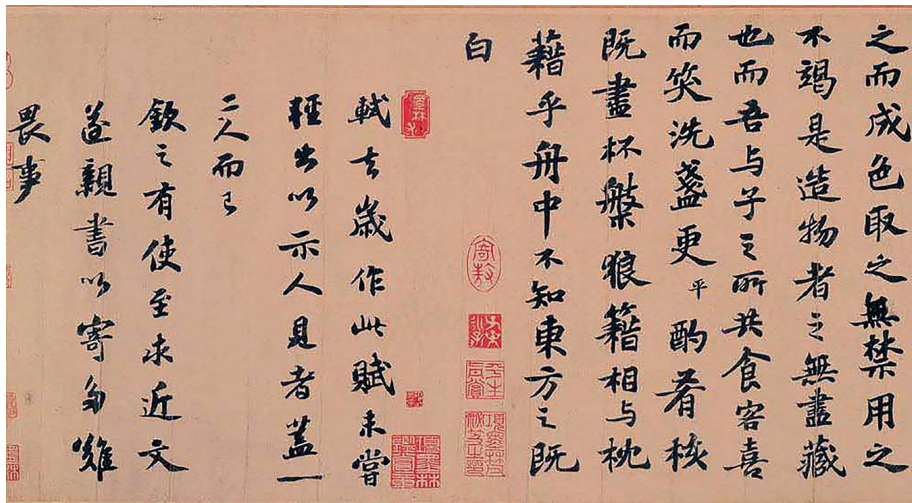 之而成色取之無禁用之
不竭是造物者之無盡藏
也而吾与子之所共食客喜
而笑洗盞更平酌肴核
既盡杯槃狼籍相与枕
藉乎舟中不知東方之既
白
軾去歲作此賦未嘗
輕出以示人見者蓋一
二人而已
欽之有使至求近文
遂親書以寄多難
畏事